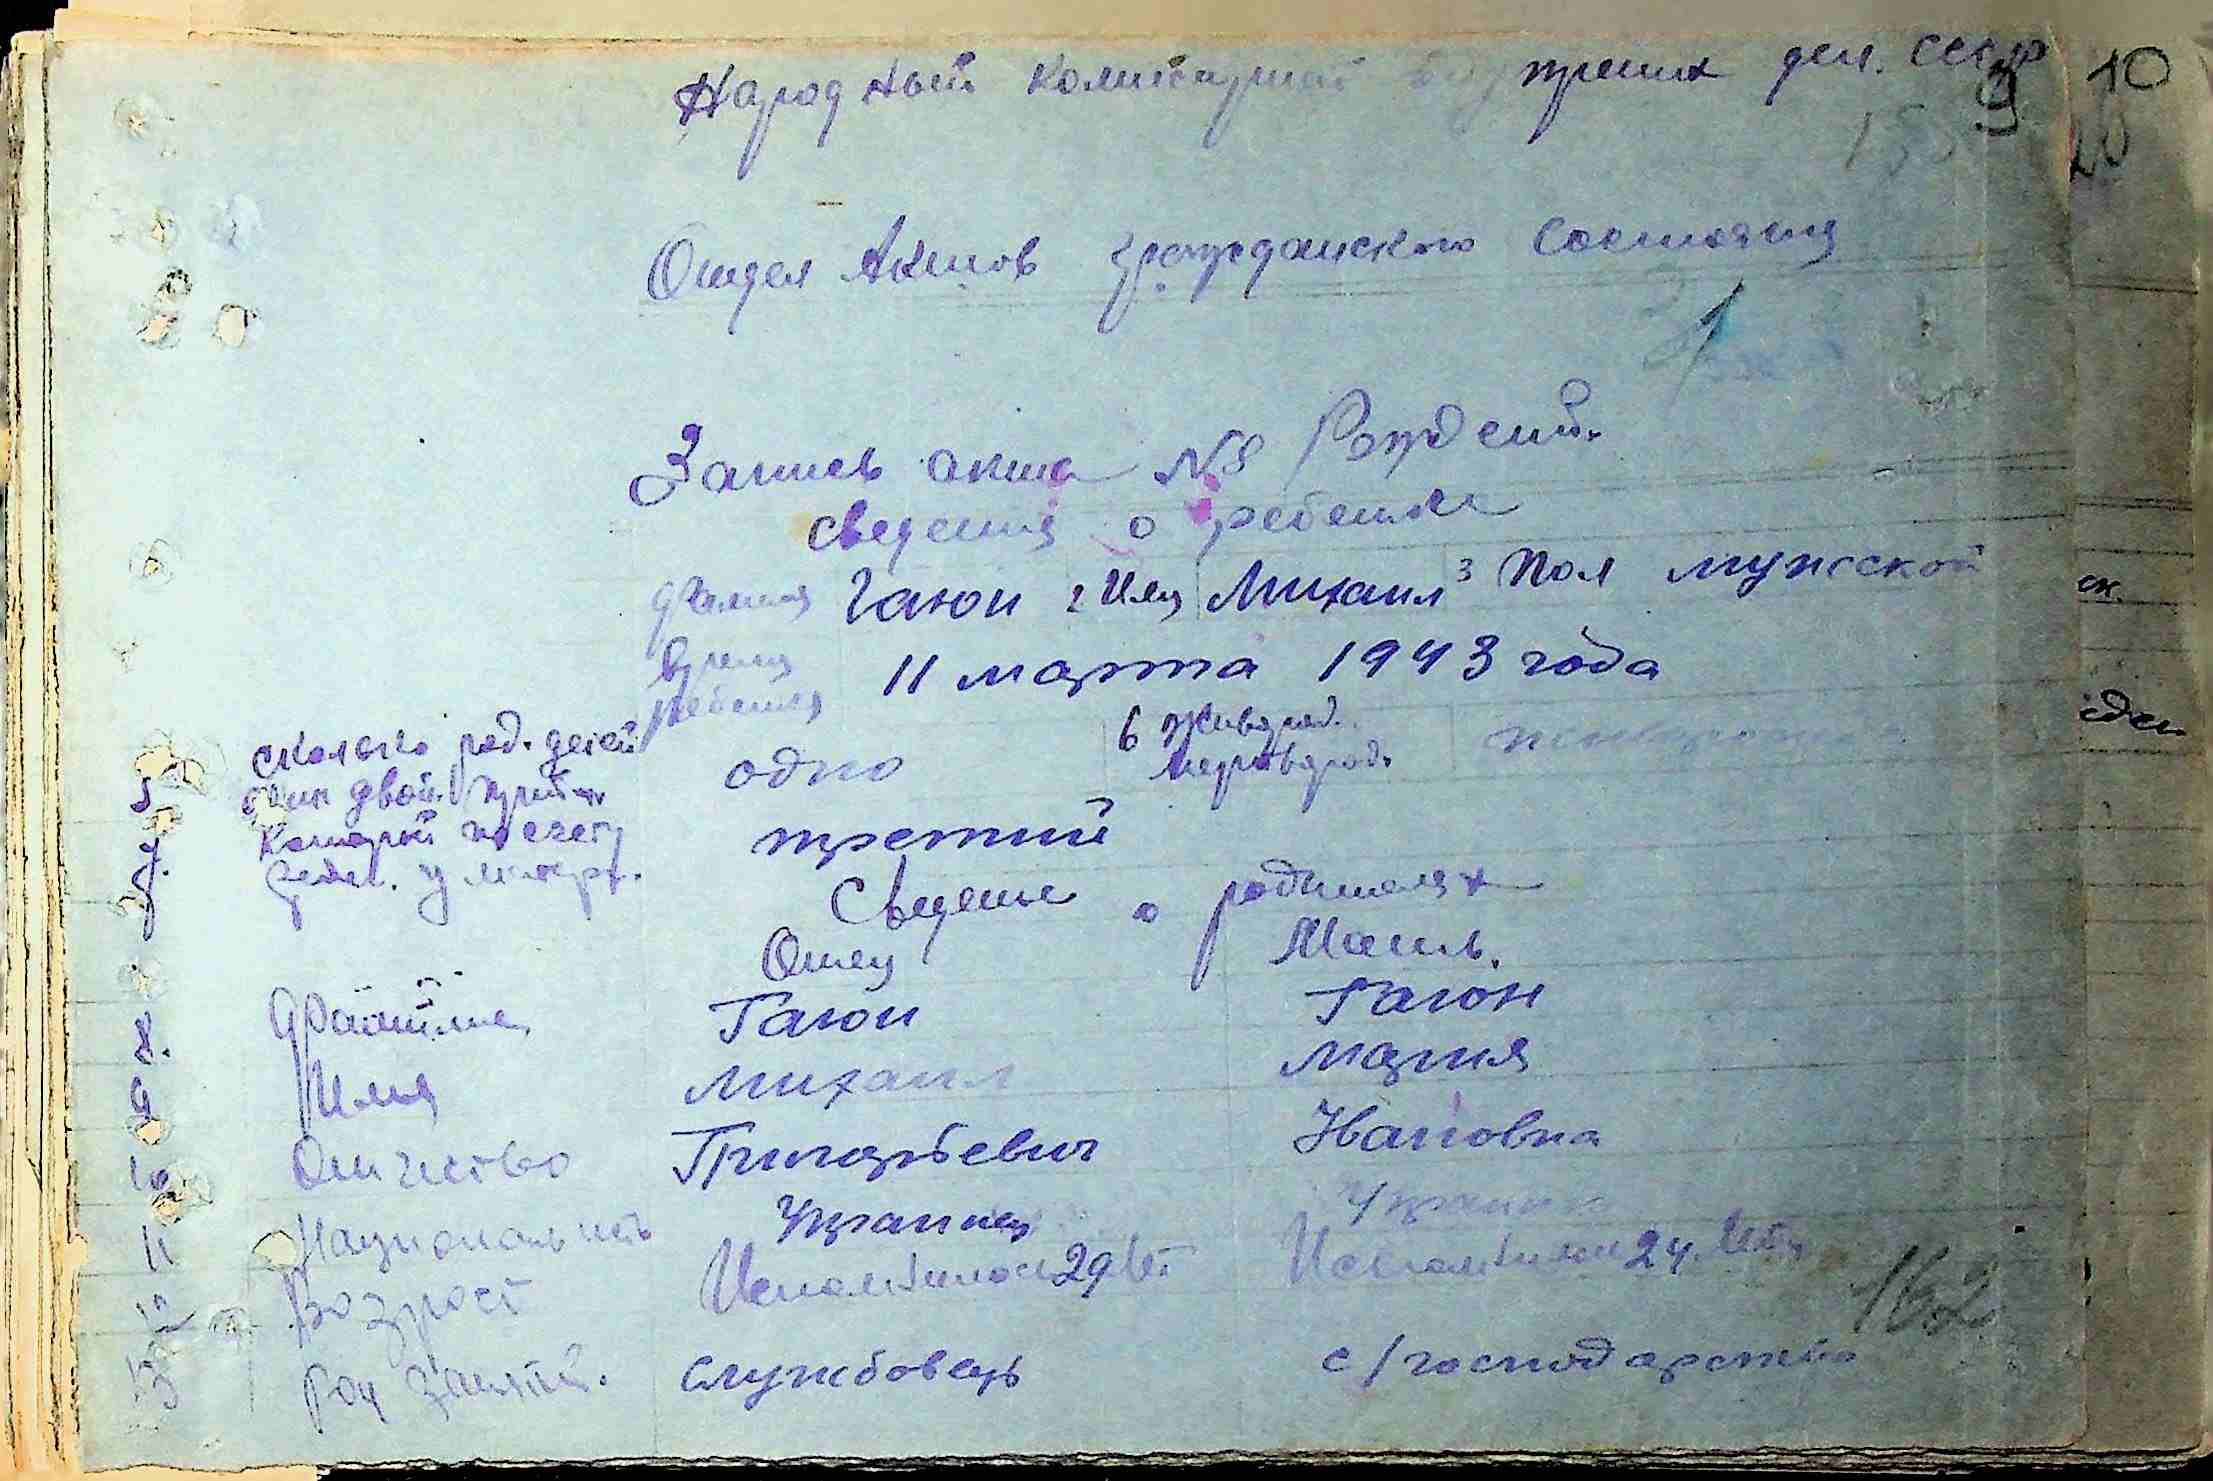 Народный Комиссариат Внутрених дел. СССР
9 10
Отдел Актов гражданского состояния
Запись акта N8 Рождений.
сведения о ребенке
Фамилия Гаюн 2 Имя Михаил 3 Пол мужской
Время 11 марта 1943 года
ребенка
5 Сколько род. детей одно 6 Живород. живорожд
один двой. трой Мертвород.
7. Который по счету третий
ребен. у матери.
Сведение о родителях
Отец Мать.
8. Фамилия Гаюн Гаюн
9 Имя Михаил Мария
10 Отчество Григорьевич Ивановна
11 Национальность Украинец Украинка
12 Возрост Исполнилось 29 лет Исполнилось 24 лет
13 Род занятий. службовець с/господарстві
162